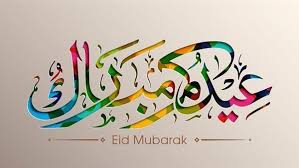 عيدكم مبارك
Eid Mubarak